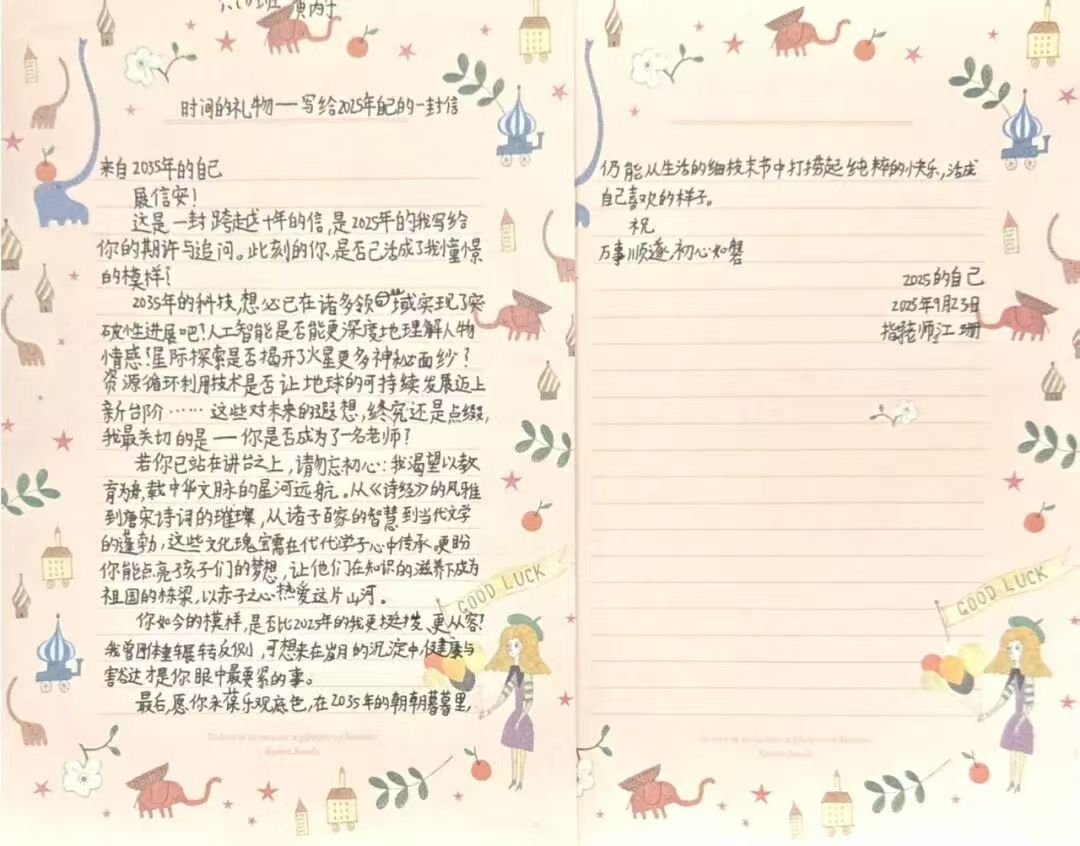 时间的礼物——写给2025年自己的一封信
来自2035年的自己
展信安!
这是一封跨越十年的信,是2025年的我写给
你的期许与追问。此刻的你,是否已活成了我憧憬
的模样?
2035年的科技,想必已在诸多领域实现了突
破性进展吧?人工智能是否能更深度地理解人物
情感?星际探索是否揭开了火星更多神秘面纱?
资源循环利用技术是否让地球的可持续发展迈上
新台阶……这些对未来的遐想,终究还是点缀,
我最关切的是——你是否成为了一名老师?
若你已站在讲台之上,请勿忘初心:我渴望以教
育为舟,载中华文脉的星河远航。从《诗经》的风雅
到唐宋诗词的璀璨,从诸子百家的智慧到当代文学
的蓬勃,这些文化瑰宝需在代代学子心中传承。更盼
你能点亮孩子们的梦想,让他们在知识的滋养下成为
祖国的栋梁,以赤子之心热爱这片山河。
你如今的模样,是否比2025年的我更挺拔、更从容?
我曾因体重辗转反侧,可想来在岁月的沉淀中,健康与
豁达才是你眼中最要紧的事。
最后,愿你永葆乐观底色,在2035年的朝朝暮暮里,
GOOD LUCK
仍能从生活的细枝末节中打捞起纯粹的快乐,活成
自己喜欢的样子。
祝
万事顺遂,初心如磐
2025的自己
2025年9月25日
指导老师:江珊
GOOD LUCK